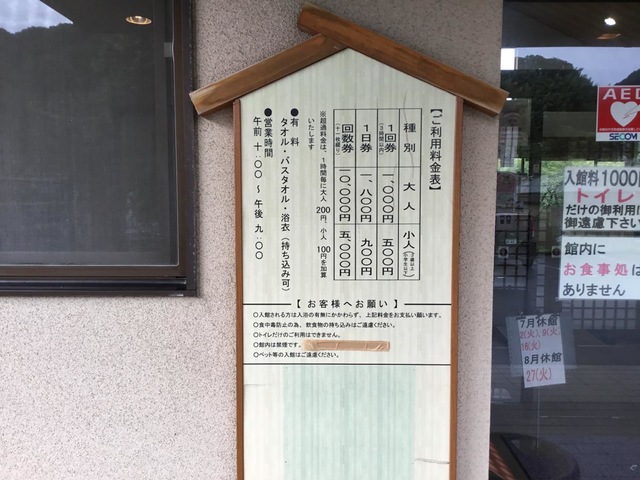 【ご利用料金表】
種別 大人 小人
1回券 一、〇〇〇円 五〇〇円
(3時間以内)
1日券 一、八〇〇円 九〇〇円
回数券 一〇、〇〇〇円 五、〇〇〇円
※超過料金は、1時間毎に大人200円、小人100円を加算
いたします
●有料
タオル・バスタオル・浴衣(持ち込み可)
●営業時間
午前 十:〇〇 ～ 午後 九:〇〇
【 お客様へお願い 】
〇入館される方は入浴の有無にかかわらず、上記料金をお支払い願います。
〇食中毒防止の為、飲食物の持ち込みはご遠慮ください。
〇トイレだけのご利用はできません。
〇館内は禁煙です。
〇ペット等の入館はご遠慮ください。
AED
SECOM
入館料1000円
トイレ
だけの御利用は
御遠慮下さい
館内に
お食事処は
ありません
7月休館
2(火),9(火),
16(火)
8月休館
27(火)